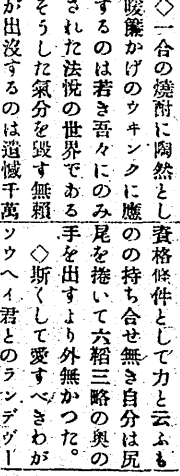 ◇一合の燒酎に陶然とし
暖簾かげのウヰンクに應
するのは若き吾々にのみ
された法悦の世界である
そうした氣分を毀す無頼
が出沒するのは遺憾千萬
資格條件として力と云ふも
のの持ち合せ無き自分は尻
尾を捲いて六韜三略の奥の
手を出すより外無かつた。
◇斯くして愛すべきわが
ソウヘイ君とのランデヴー